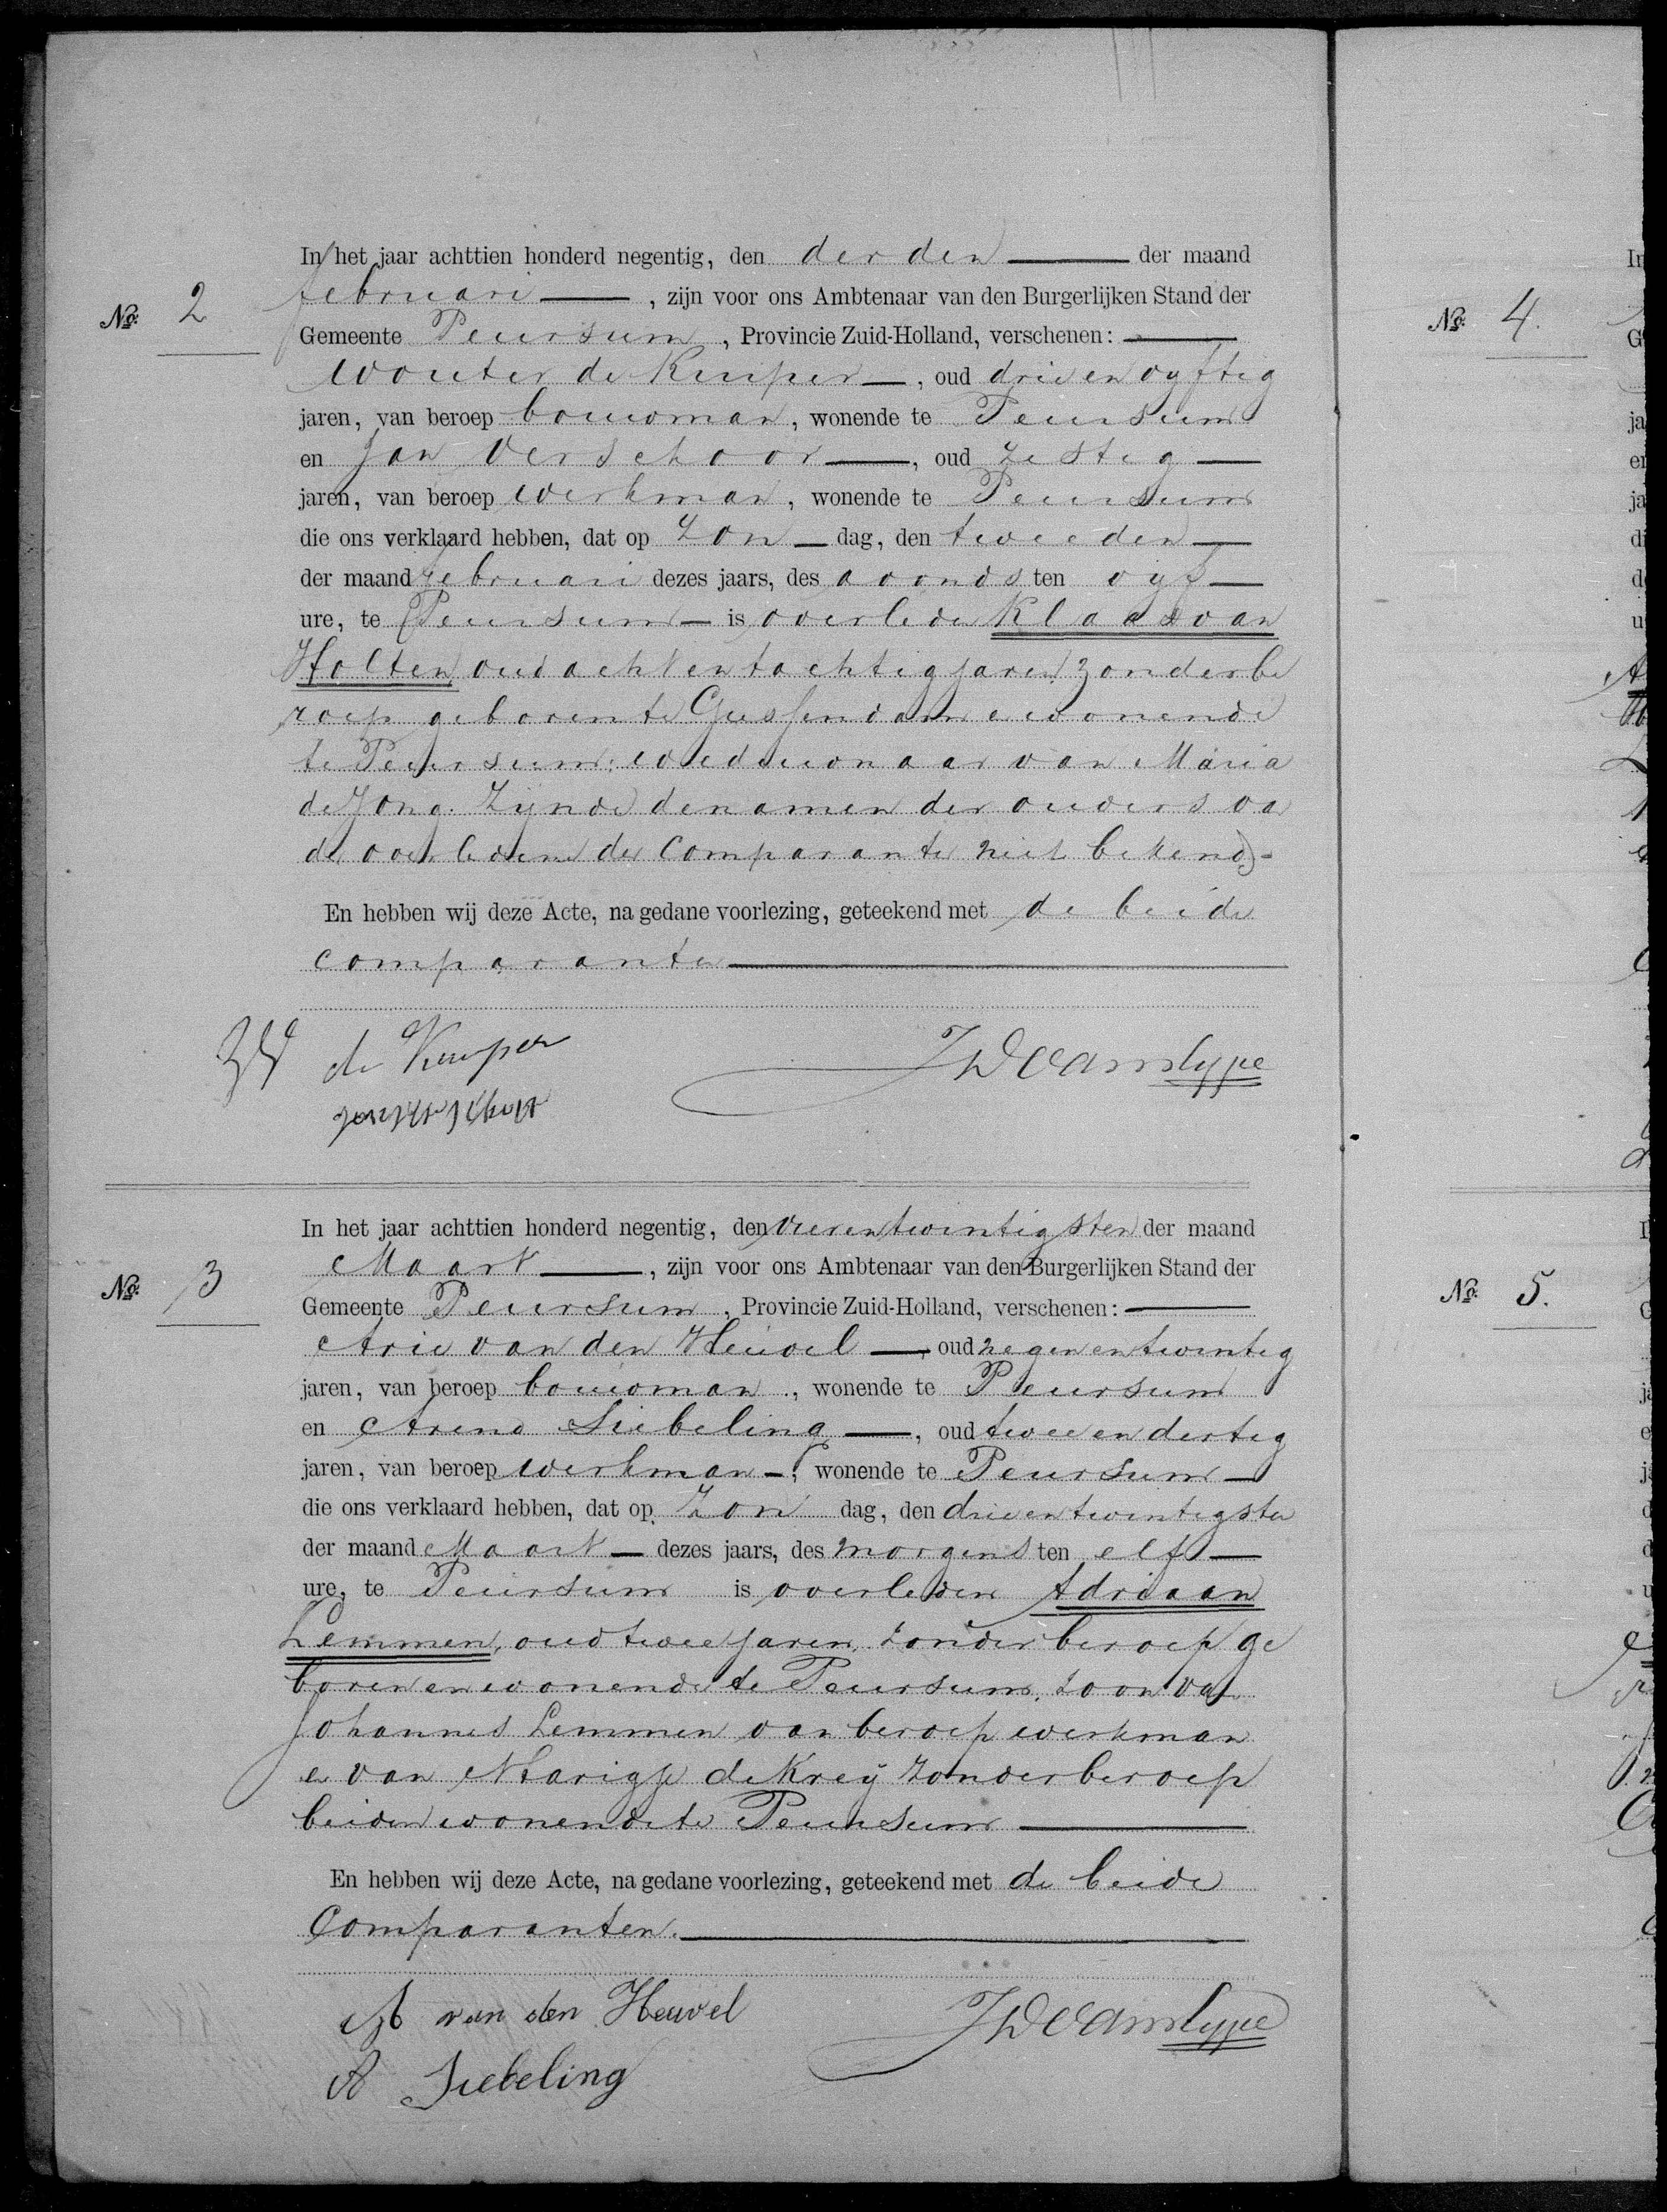 In het jaar achttien honderd negentig, den derden der maand
februari, zijn voor ons Ambtenaar van den Burgerlijken Stand der
No. 2
Gemeente Peursum, Provincie Zuid-Holland, verschenen:
Wouter de Kuiper, oud drie en vyftig
jaren, van beroep bouwman, wonende te Peursum
en Jan Verschoor, oud zestig
jaren, van beroep werkman, wonende te Peursum
die ons verklaard hebben, dat op Zon dag, den tweeden
der maand februari dezes jaars, des avonds ten vyf
ure, te Peursum is overleden Klaas van
Holten, oud acht en tachtig jaren, zonder be
roep geboren te Giessendam wonende
te Peursum; weduwnaar van Maria
de Jong. Zijnde de namen der ouders va
de overledene der Comparante niet bekend.-
En hebben wij deze Acte, na gedane voorlezing, geteekend met de beide
comparante
W de Kuiper
In het jaar achttien honderd negentig, den vierentwintigsten der maand
Maart, zijn voor ons Ambtenaar van den Burgerlijken Stand der
No. 3
Gemeente Peursum, Provincie Zuid-Holland, verschenen:
Arie van den Heuvel, oud negen en twintig
jaren, van beroep bouwman, wonende te Peursum
en Arend Siebeling, oud twee en dertig
jaren, van beroep werkman, wonende te Peursum
die ons verklaard hebben, dat op Zon dag, den drieentwintigste
der maand Maart dezes jaars, des morgens ten elf
ure, te Peursum is overleden Adriaan
Lemmen, oud twee jaren, zonder beroep ge
boren en wonende te Peursum, zoon van
Johannes Lemmen van beroep werkman
e van Marigje de Kreij zonder beroep
beiden wonende te Peursum
En hebben wij deze Acte, na gedane voorlezing, geteekend met de beide
Comparanten.
A van den Heuvel
A Siebeling
No. 4.
No. 5.